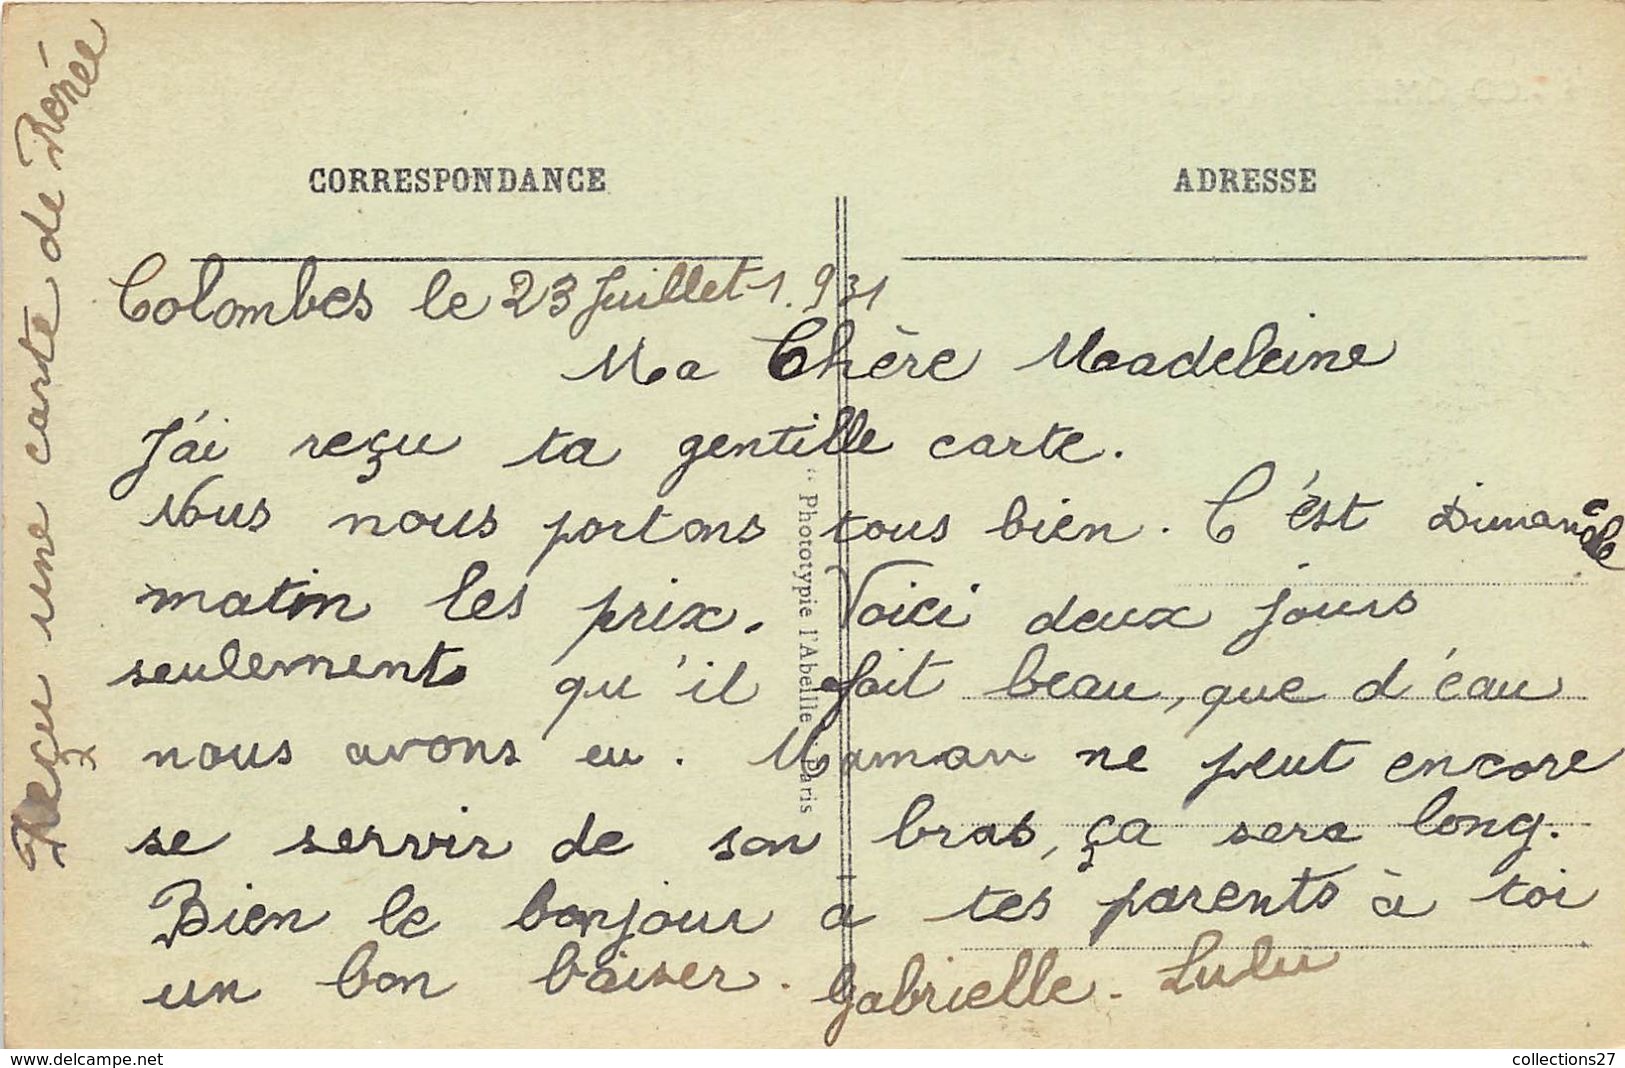 Reçu une carte de Renée
CORRESPONDANCE
ADRESSE
Colombes le 23 Juillet 1.931
Ma Chère Maadeleine
J'ai reçu ta gentille carte.
Nous nous portons tous bien. C'est Dimanche
matin les prix. Voici deux jours
seulement qu'il fait beau, que d'éau
nous avons eu. Maman ne peut encore
se servir de son bras, ça sera long.
Bien le bonjour a tes parents à toi
un bon baiser. Gabrielle. Lulu
“ Phototypie l'Abeille „ Paris
www.delcampe.net
collections27